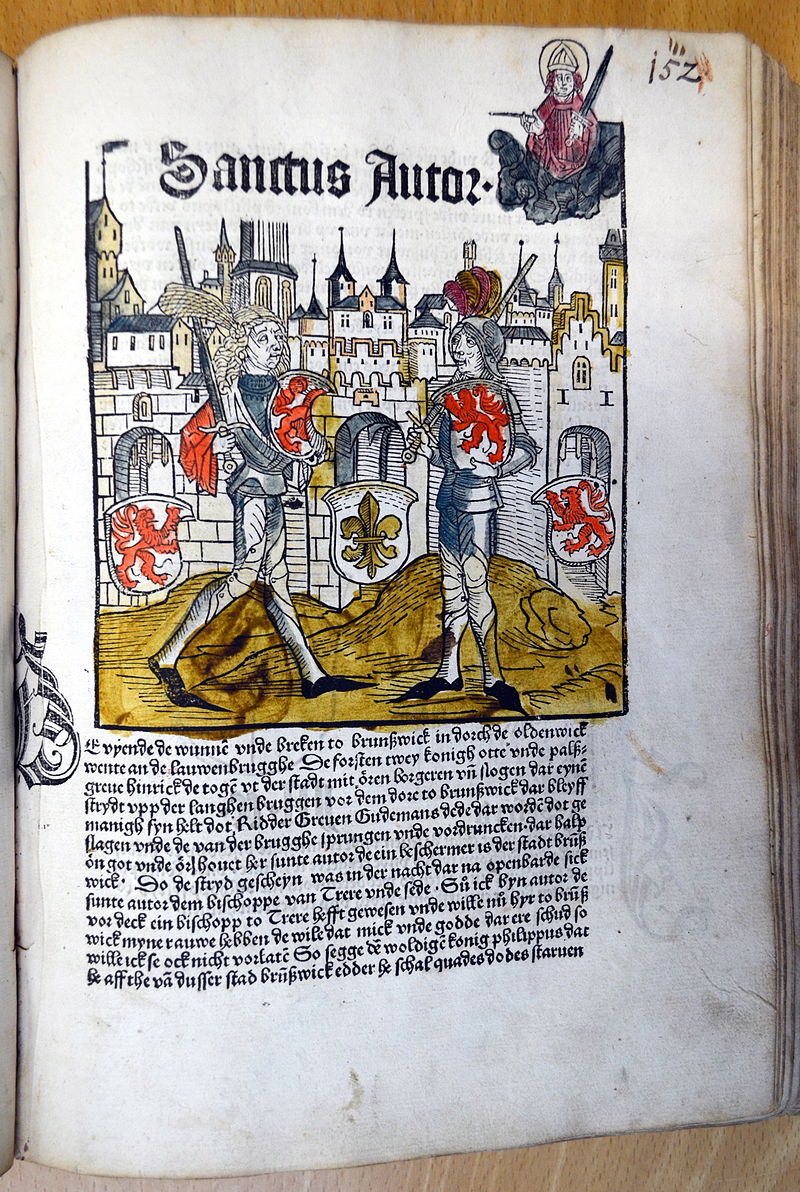 152
Sanctus Autor.
DE vyende de wunnē vnde breken to brunßwick in dorch de oldenwick
wente an de lauwenbrugghe De forsten twey konigh otte vnde palß-
greue hinrick de togē vt der stadt mit ōren borgeren vñ slogen dar eynē
strydt vpp der langhen bruggen vor dem dore to brunßwick dar bleyff
manigh fyn helt dot Ridder Greuen Gudemans dede dar wordē dot ge
slagen vnde de van der brugghe sprungen vnde vordruncken. dar halp
ōn got vnde ōrl houet her sunte autor de ein beschermer is der stadt brūß
wick. Do de stryd gescheyn was in der nacht dar na openbarde sick
sunte autor dem bischoppe van Trere vnde sede. Sü ick byn autor de
vor deck ein bischopp to Trere hefft gewesen vnde wille nů hyr to brūß
wick myne rauwe hebben de wile dat mick vnde godde dar ere schud so
wille ick se ock nicht vorlatē So segge dē woldigē konig philippus dat
he aff the vā dusser stad brūßwick edder he schal quades dodes staruen